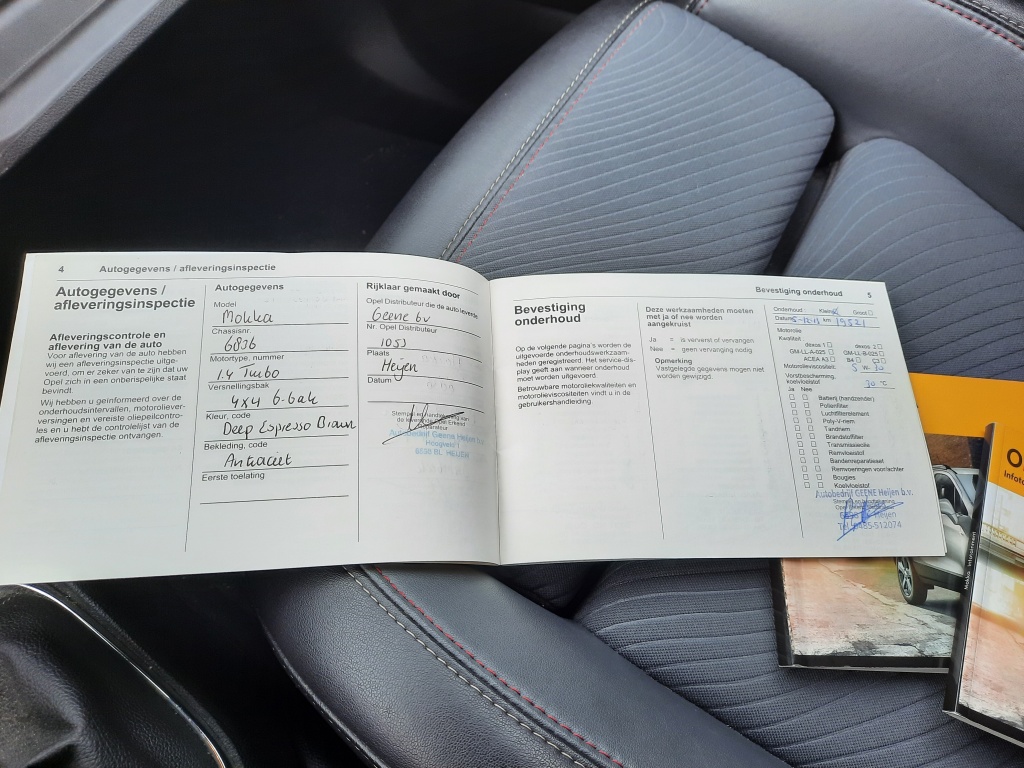 4 Autogegevens / afleveringsinspectie
Autogegevens /
afleveringsinspectie
Afleveringscontrole en
aflevering van de auto
Voor aflevering van de auto hebben
wij een afleveringsinspectie uitge-
voerd, om er zeker van te zijn dat uw
Opel zich in een onberispelijke staat
bevindt.
Wij hebben u geïnformeerd over de
onderhoudsintervallen, motoroliever-
versingen en vereiste oliepeilcontro-
les en u hebt de controlelijst van de
afleveringsinspectie ontvangen.
Autogegevens
Model
Mokka
Chassisnr.
6836
Motortype, nummer
1.4 Turbo
Versnellingsbak
4x4 6-bak
Kleur, code
Deep Espresso Braun
Bekleding, code
Antraciet
Eerste toelating
Rijklaar gemaakt door
Opel Distributeur die de auto leverde
Geene bv
Nr. Opel Distributeur
1053
Plaats
Heijen
Datum
Stempel en handtekening van
de leverende Opel Erkend
Reparateur
Autobedrijf Geene Heijen b.v.
Hoogveld 1
6598 BL HEIJEN
Bevestiging onderhoud 5
Bevestiging
onderhoud
Op de volgende pagina's worden de
uitgevoerde onderhoudswerkzaam-
heden geregistreerd. Het service-dis-
play geeft aan wanneer onderhoud
moet worden uitgevoerd.
Betrouwbare motoroliekwaliteiten en
motorolieviscositeiten vindt u in de
gebruikershandleiding.
Deze werkzaamheden moeten
met ja of nee worden
aangekruist
Ja = is ververst of vervangen
Nee = geen vervanging nodig
Opmerking
Vastgelegde gegevens mogen niet
worden gewijzigd.
Onderhoud Klein Groot
Datum km 19521
Motorolie
Kwaliteit
dexos 1 dexos 2
GM-LL-A-025 GM-LL-B-025
ACEA A3 B4 C3
Motorolieviscositeit: 5 w 30
Vorstbescherming,
koelvloeistof 30 °C
Ja Nee
Batterij (handzender)
Pollenfilter
Luchtfilterelement
Poly-V-riem
Tandriem
Brandstoffilter
Transmissieolie
Remvloeistof
Bandenreparatieset
Remvoeringen voor/achter
Bougies
Koelvloeistof
Autobedrijf GEENE Heijen b.v.
Heijen
Tel. 0485-512074
O
Infota